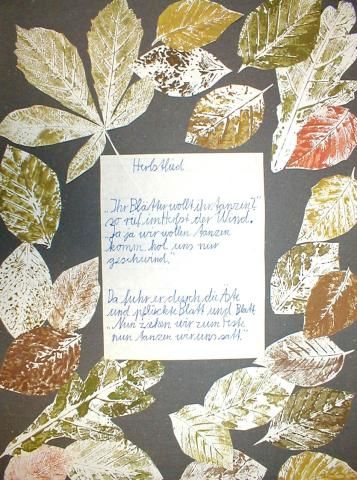 Herbstlied
„Ihr Blätter wollt ihr tanzen?"
so ruf im Herbst der Wind.
"Ja ja wir wollen tanzen
komm hol uns nur
geschwind."
Da fuhr er durch die Äste
und pflückte Blatt und Blatt
„Nun ziehen wir zum Feste
nun tanzen wir uns satt."